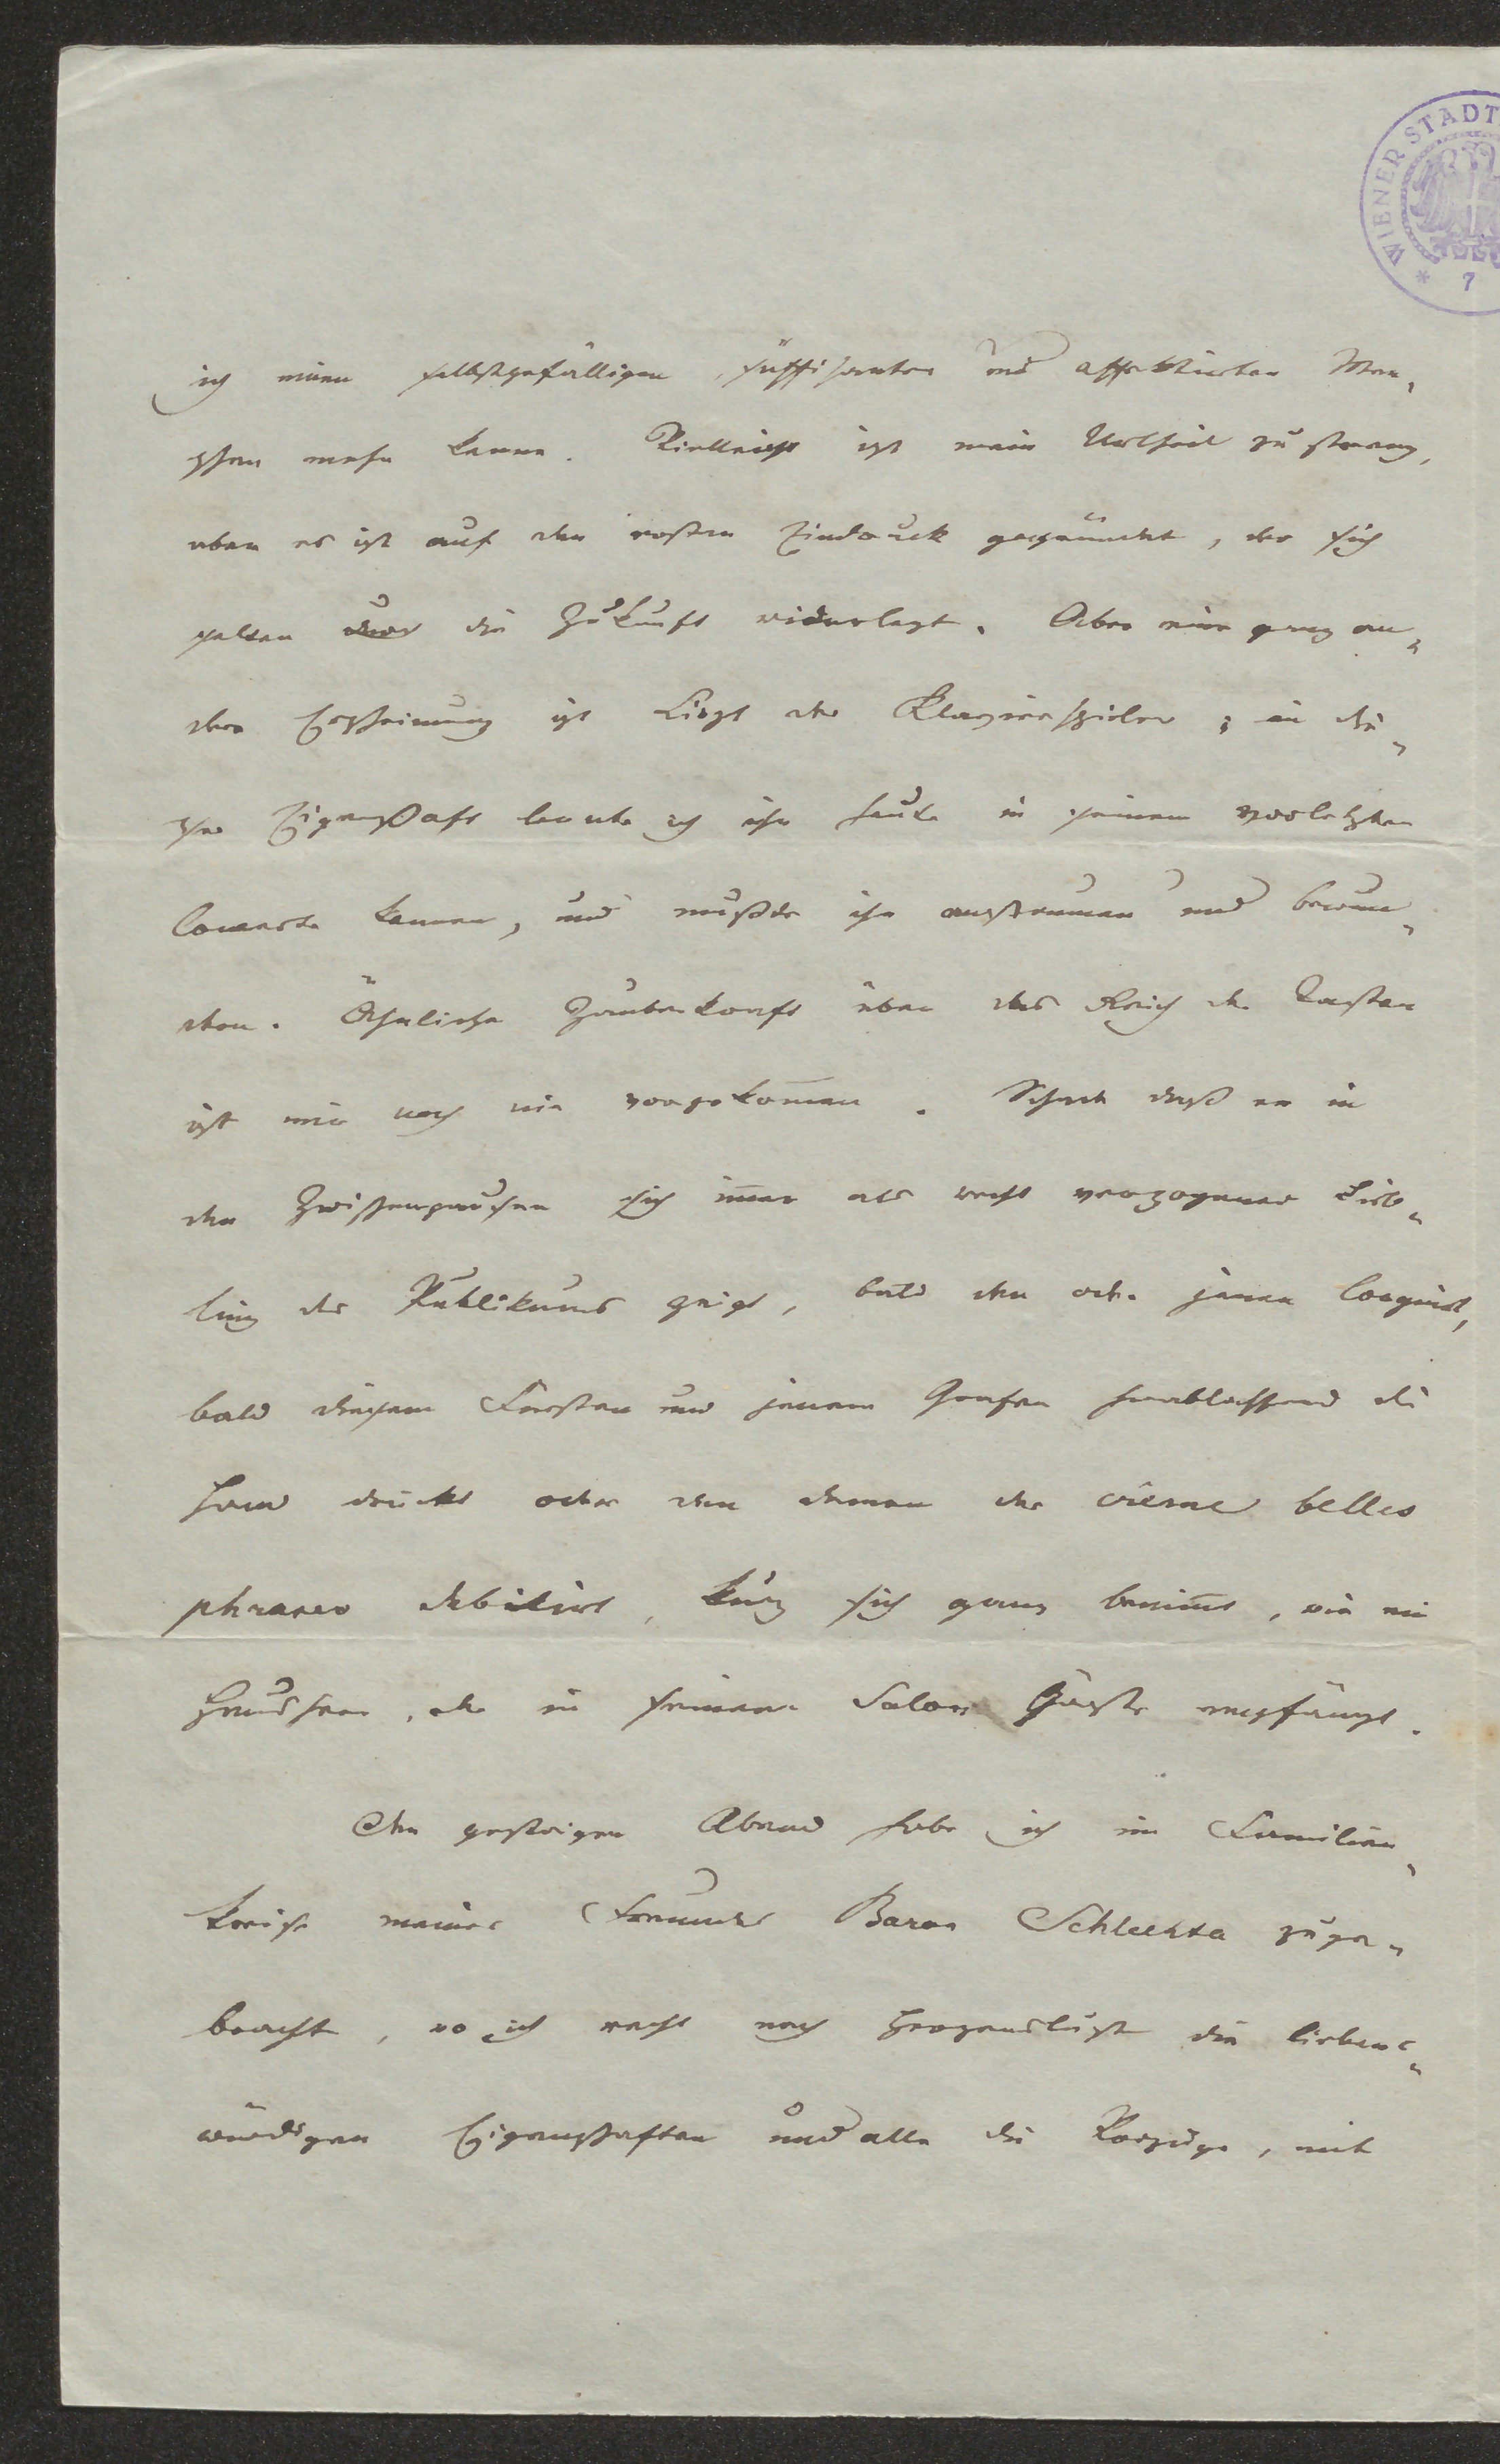 WIENER STADT
* 7
ich einen selbstgefälligen, süffisanten und affektirten Men-
schen mehr kenne. Vielleicht ist mein Urtheil zu streng,
aber es ist auf den ersten Eindruck gegründet, der sich
selten durch die Zukunft widerlegt. Aber eine ganz an-
dere Erscheinung ist Liszt der Klavierspieler; in die-
ser Eigenschaft lernte ich ihn heute in seinem vorletzten
Concerte kennen, und mußte ihn anstaunen und bewun-
dern. Ähnliche Zauberkraft über das Reich der Tasten
ist mir noch nie vorgekom̄en. Schade daß er in
den Zwischenpausen sich im̄er als recht verzogener Lieb-
ling des Publikums zeigt, bald den oder jenen lorgnirt,
bald diesem Fürsten und jenem Grafen herablassend die
Hand drückt oder den Damen der crême belles
phrases debitirt, kurz sich ganz benim̄t, wie ein
Hausherr, der in seinem Salon Gäste empfängt.
Den gestrigen Abend habe ich im Familien-
kreise meines Freundes Baron Schlechta zuge-
bracht, wo ich recht nach Herzenslust die liebens-
würdigen Eigenschaften und alle die Vorzüge, mit